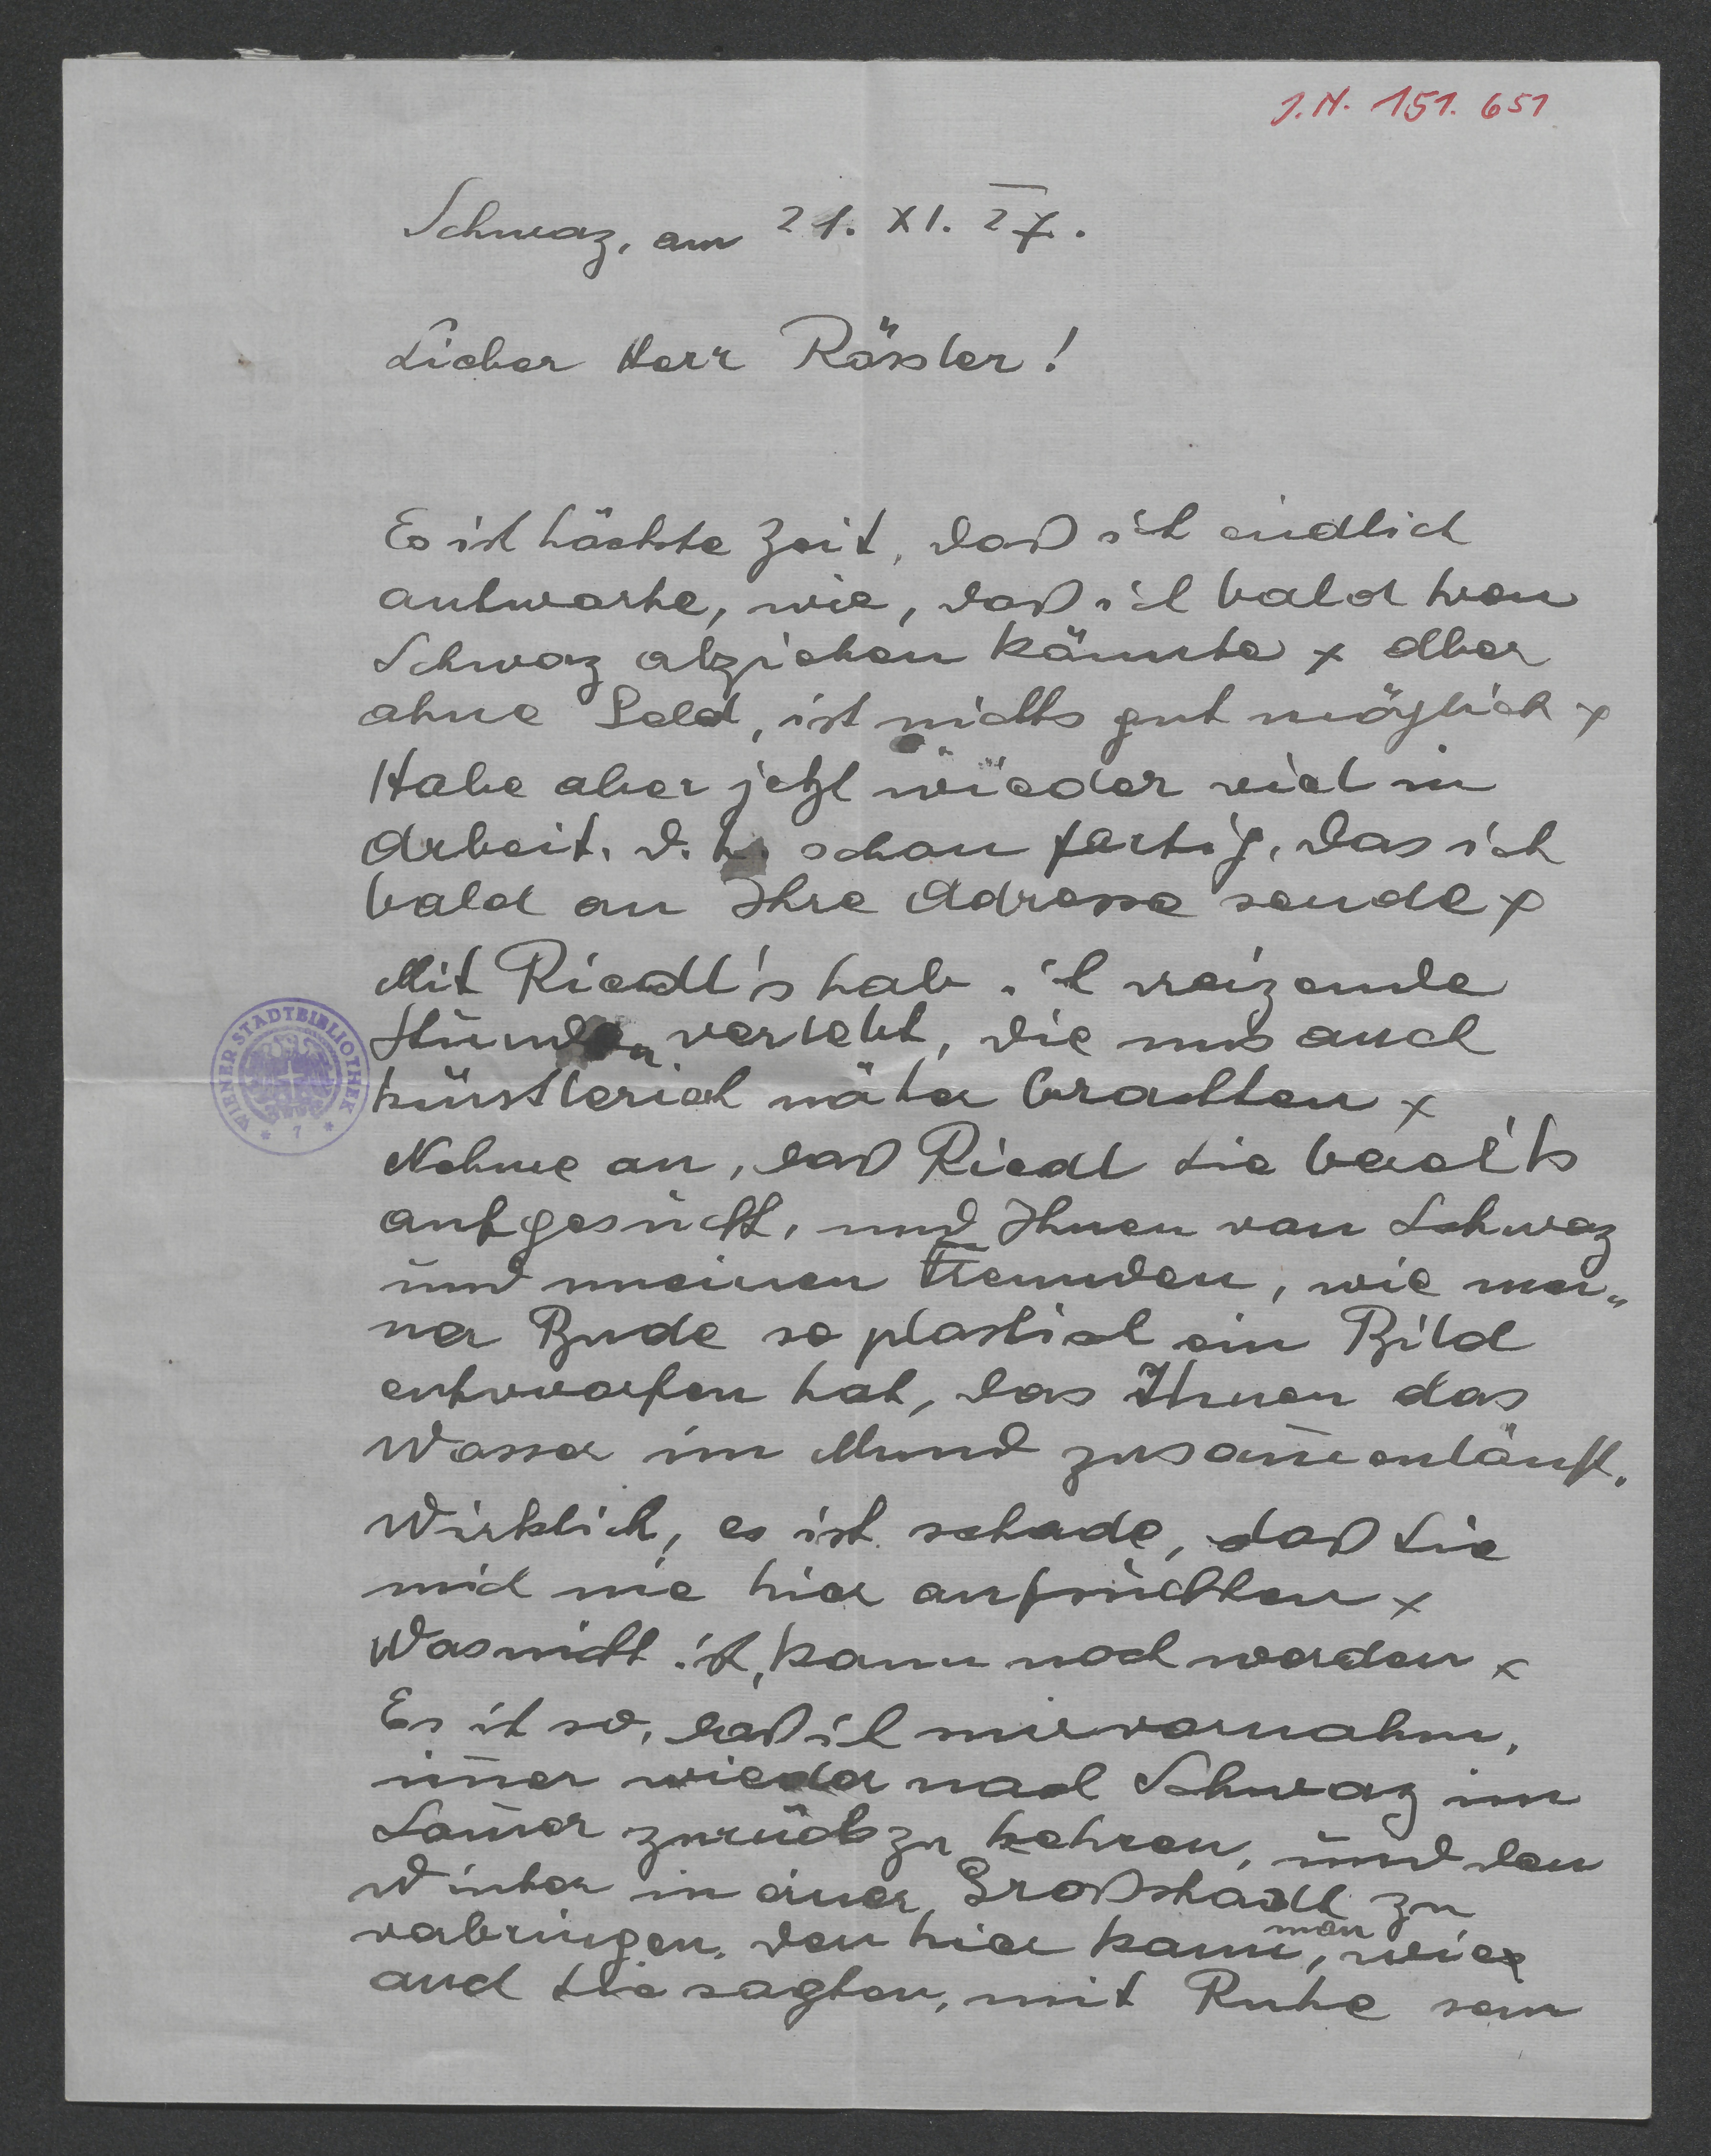 J.N. 151.651
Schwaz, am 21. XI. 27.
Lieber Herr Rössler!
Es ist höchste Zeit, daß ich endlich
antworte, wie, daß ich bald von
Schwaz abziehen könnte x Aber
ohne Geld, ist nichts gut möglich x
Habe aber jetzt wieder viel in
Arbeit, d. h. schon fertig, das ich
bald an Ihre Adresse sende x
Mit Riedl's hab ich reizende
Stunden verlebt, die uns auch
künstlerich näher brachten x
Nehme an, daß Riedl Sie bereits
aufgesucht, und Ihnen von Schwaz
und meinen Freunden, wie mei„
ner Bude so plastich ein Bild
entworfen hat, das Ihnen das
Wasser im Mund zusam̄enläuft.
Wirklich, es ist schade, daß Sie
mich nie hier aufsuchten x
Was nicht ist, kann noch werden x
Es ist so, daß ich mir vornahm,
im̄er wieder nach Schwaz im
Som̄er zurückzukehren, und den
Winter in einer Großstadt zu
verbringen. den hier kann man, wie
auch Sie sagten, mit Ruhe sein
WIENER STADTBIBLIOTHEK * 7 *